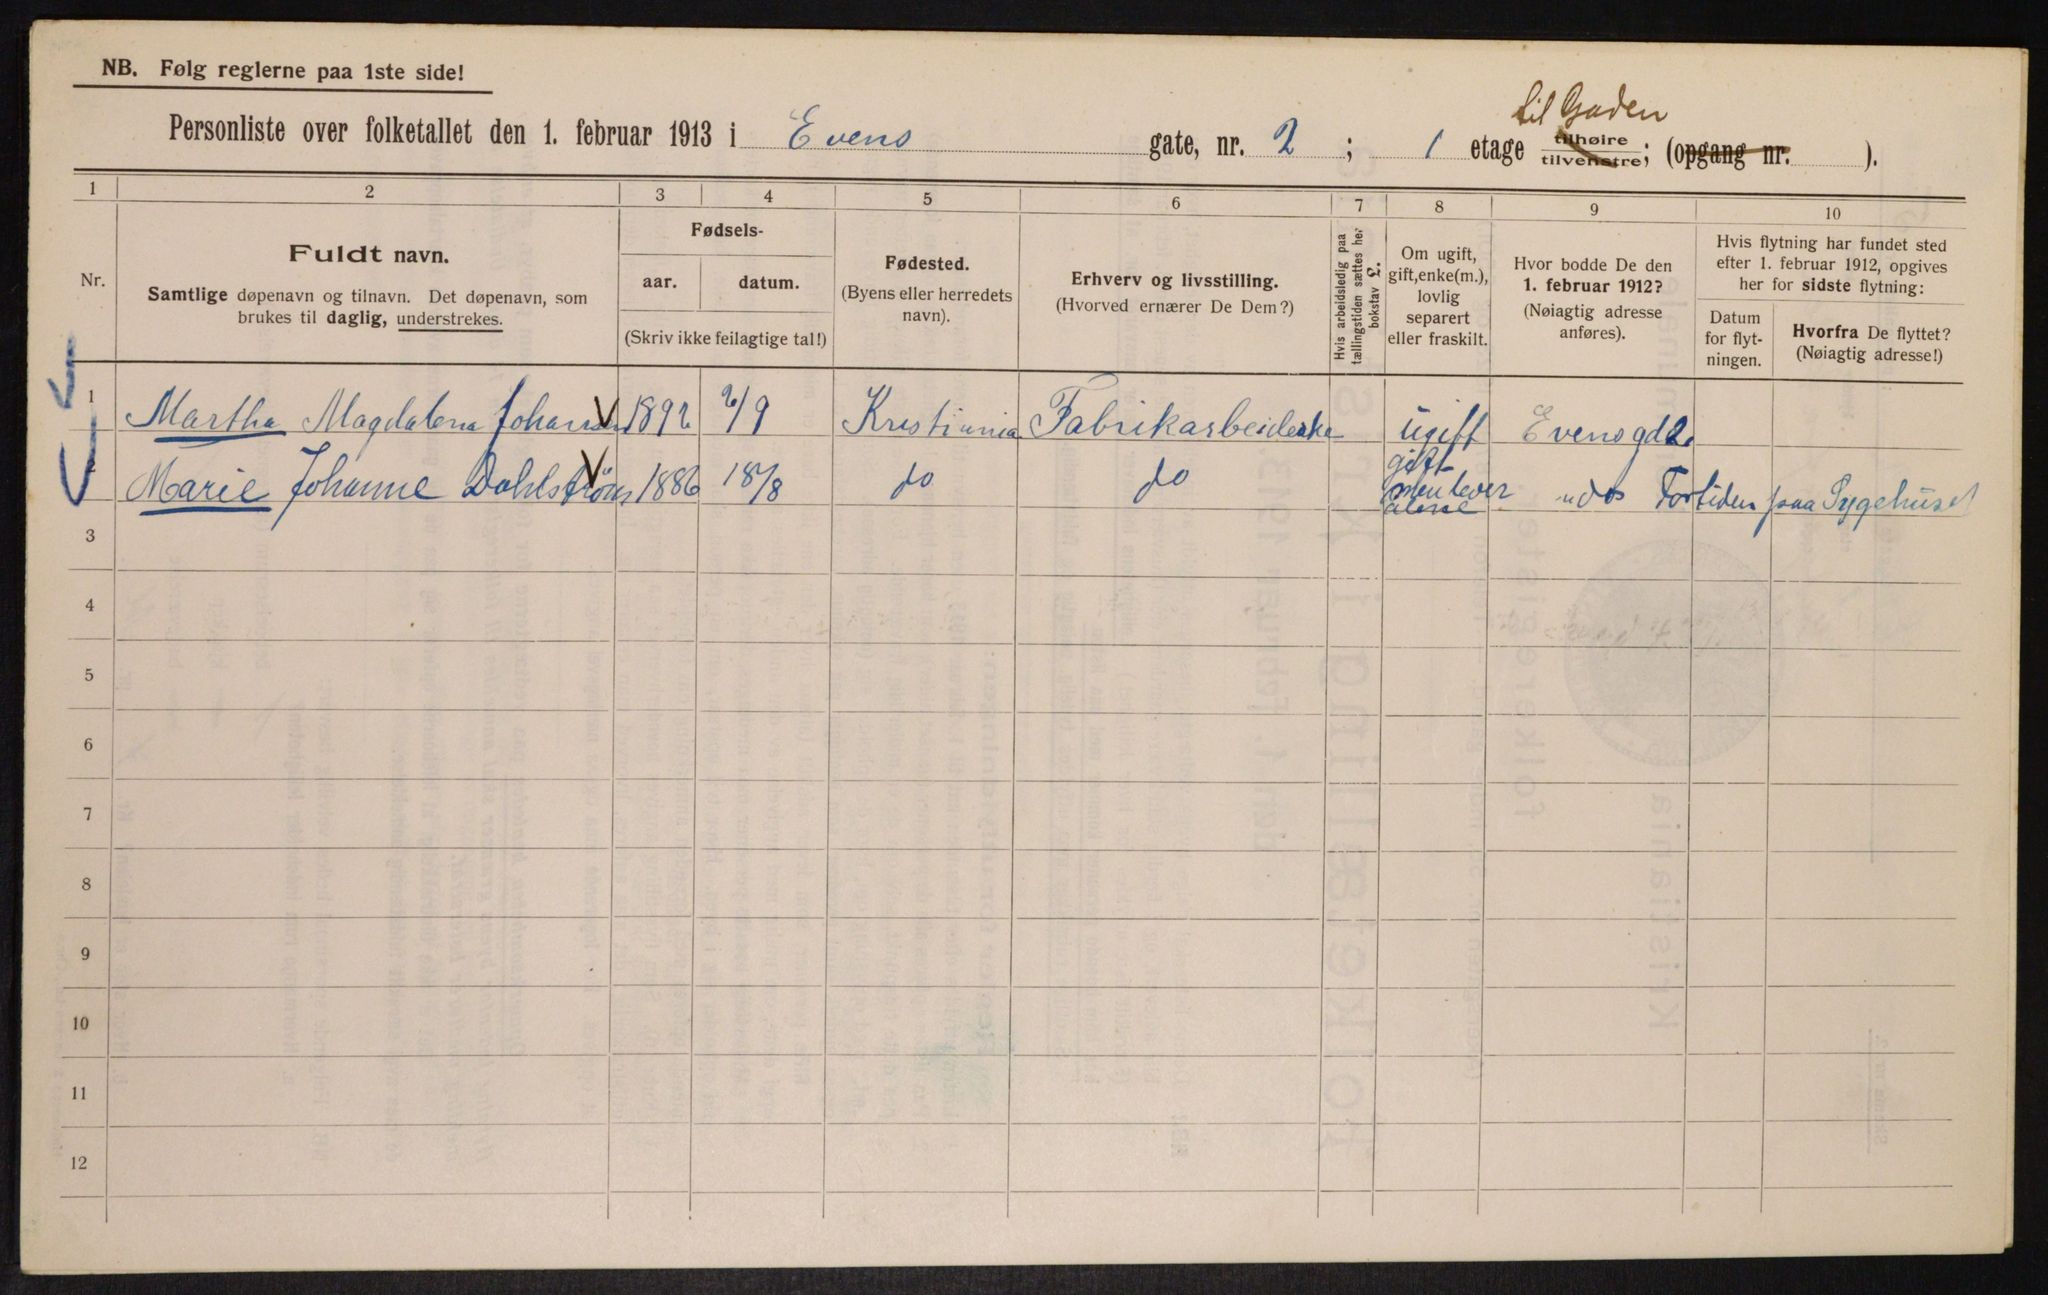 NB. Følg reglerne paa 1ste side!
til Gaden
Personliste over folketallet den 1. februar 1913 i Evens gate, nr. 2 ; 1 etage tilhøire tilvenstre; (opgang nr. ).
1 2 3 4 5 6 7 8 9 10
Nr.
Fuldt navn.
Samtlige døpenavn og tilnavn. Det døpenavn, som
brukes til daglig, understrekes.
Fødsels-
aar. datum.
(Skriv ikke feilagtige tal!)
Fødested.
(Byens eller herredets
navn).
Erhverv og livsstilling.
(Hvorved ernærer De Dem?)
Hvis arbeidsledig paa
tællingstiden sættes her
bokstav L.
Om ugift,
gift, enke(m.),
lovlig
separert
eller fraskilt.
Hvor bodde De den
1. februar 1912?
(Nøiagtig adresse
anføres).
Hvis flytning har fundet sted
efter 1. februar 1912, opgives
her for sidste flytning:
Datum
for flyt-
ningen.
Hvorfra De flyttet?
(Nøiagtig adresse!)
1 Martha Magdalena 1892 /9 Kristiania Fabrikarbeiderske ugift Evensgd 2
2 Marie Johanne Dahlstrøm 1886 18/8 do do gift men lever alene do Fortiden paa Sygehuset
3
4
5
6
7
8
9
10
11
12